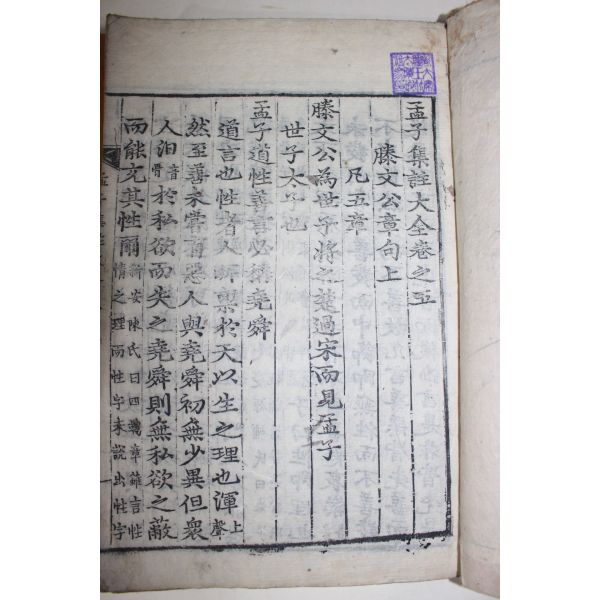 孟子集註大全卷之五
滕文公章句上
凡五章
滕文公為世子將之楚過宋而見孟子
世子太子也
孟子道性善言必稱堯舜
道言也性者人所稟於天以生之理也渾上聲
然至善未嘗有惡人與堯舜初無少異但衆
人汨音骨於私欲而失之堯舜則無私欲之蔽
而能充其性爾新安陳氏曰四端章雖言性
情之理而性字未說出性字